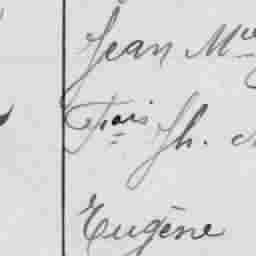 Jean Mie
Frais Jh.
Eugène